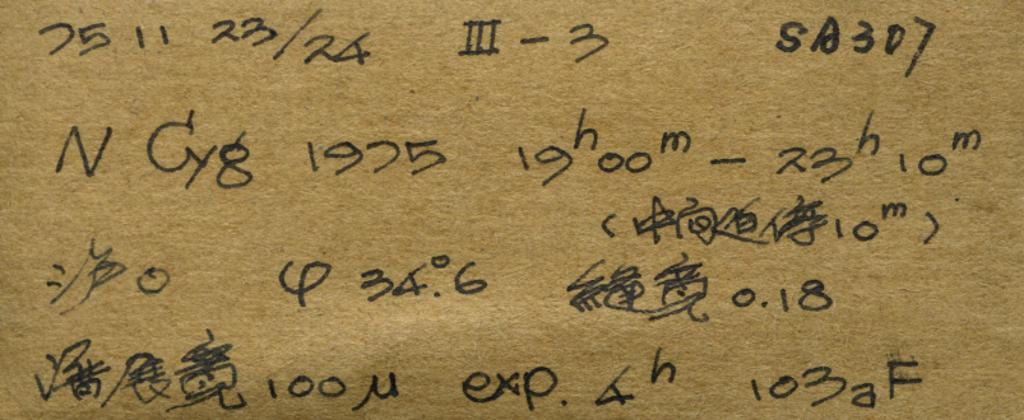 75 11 23/24 III-3 SA307
N Cyg 1975 19ʰ00ᵐ - 23ʰ10ᵐ
(中间迫停10ᵐ)
沪0 φ 34°.6 缝宽 0.18
谱展宽 100μ exp. 4ʰ 103aF